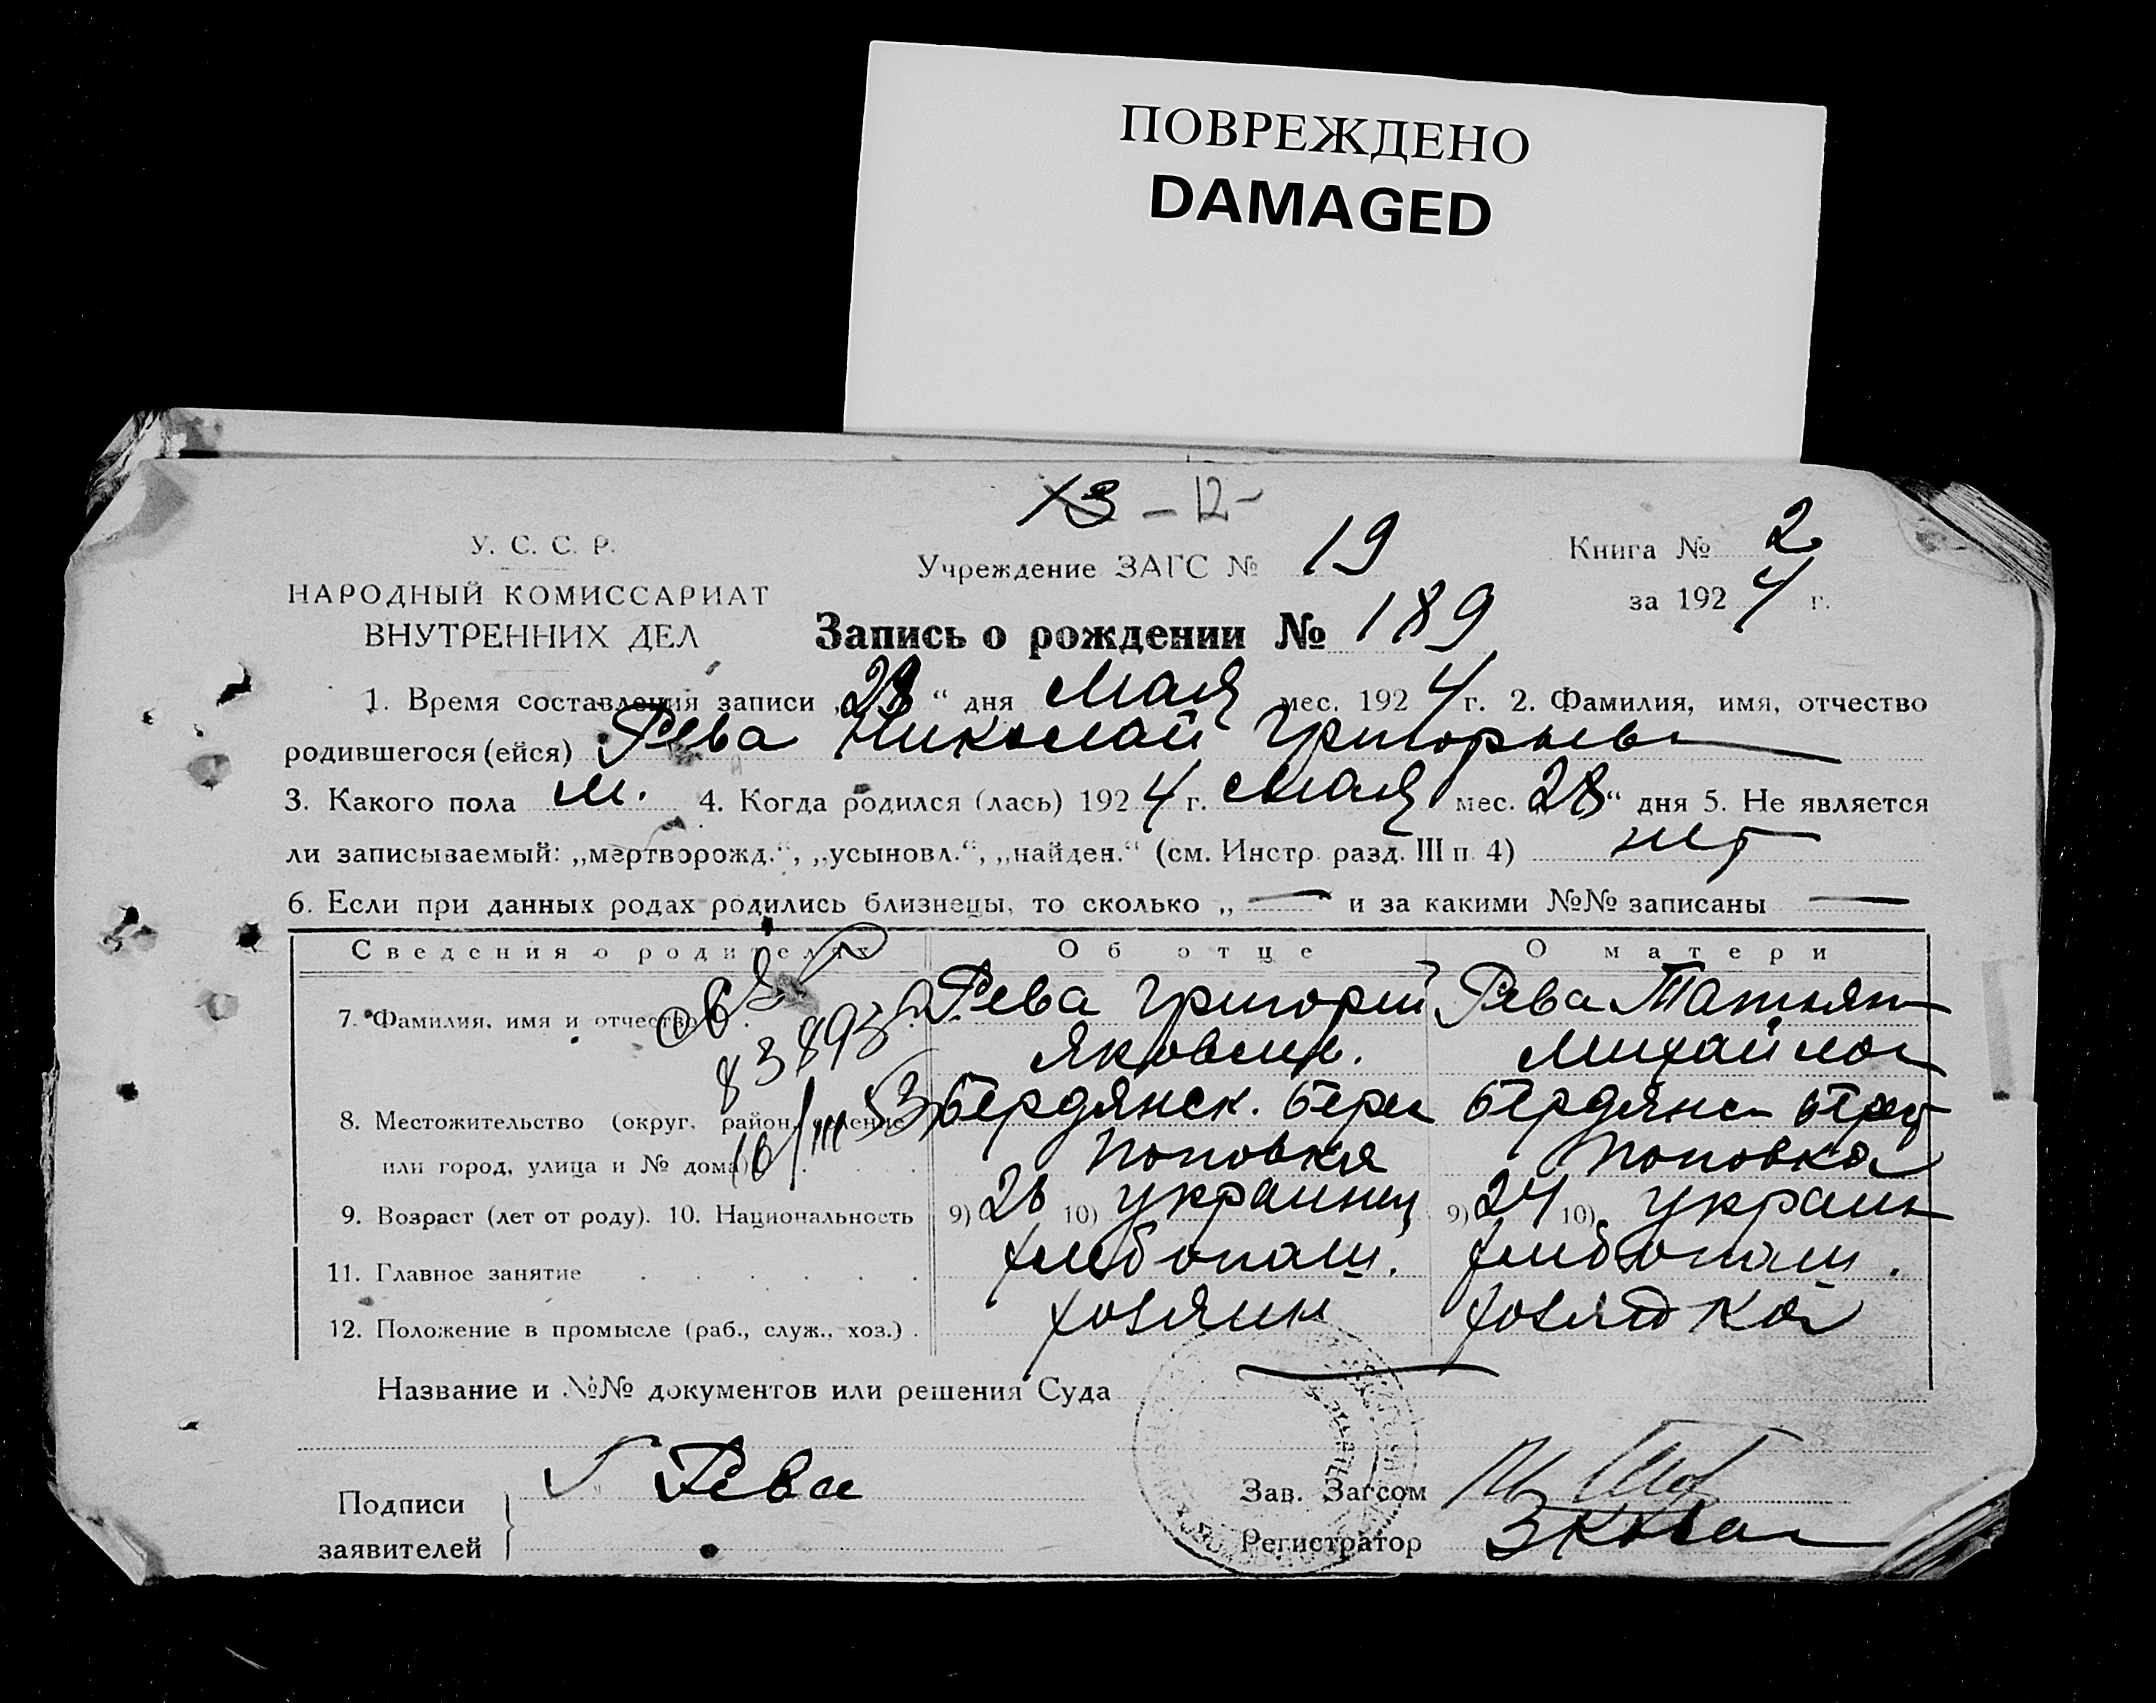 ПОВРЕЖДЕНО
DAMAGED
13 - 12 -
У. С. С. Р.
НАРОДНЫЙ КОМИССАРИАТ
ВНУТРЕННИХ ДЕЛ
Учреждение ЗАГС № 19
Книга № 2
за 1924 г.
Запись о рождении № 189
1. Время составления записи „28“ дня Мая мес. 1924 г. 2. Фамилия, имя, отчество
родившегося (ейся) Рева Николай Григорьев
3. Какого пола м. 4. Когда родился (лась) 1924 г. Мая мес. 28“ дня 5. Не является
ли записываемый: „мертворожд.“, „усыновл.“, „найден.“ (см. Инстр. разд. III п. 4) нет
6. Если при данных родах родились близнецы, то сколько „ — “ и за какими №№ записаны —
Сведения о родителях Об отце О матери
7. Фамилия, имя и отчество Рева Григорий Рева Татьян
Яковлев. Михайлов
83893
10/III 53
8. Местожительство (округ, район, селение Бердянск. Берег Бердянс Берег
или город, улица и № дома) Поповка Поповка
9. Возраст (лет от роду). 10. Национальность 9) 28 10) украинец 9) 24 10) украин
11. Главное занятие хлебопаш. хлебопаш.
12. Положение в промысле (раб., служ., хоз.) хозяин хозяйка
Название и №№ документов или решения Суда —
Подписи
заявителей
Рева
Зав. Загсом
Регистратор